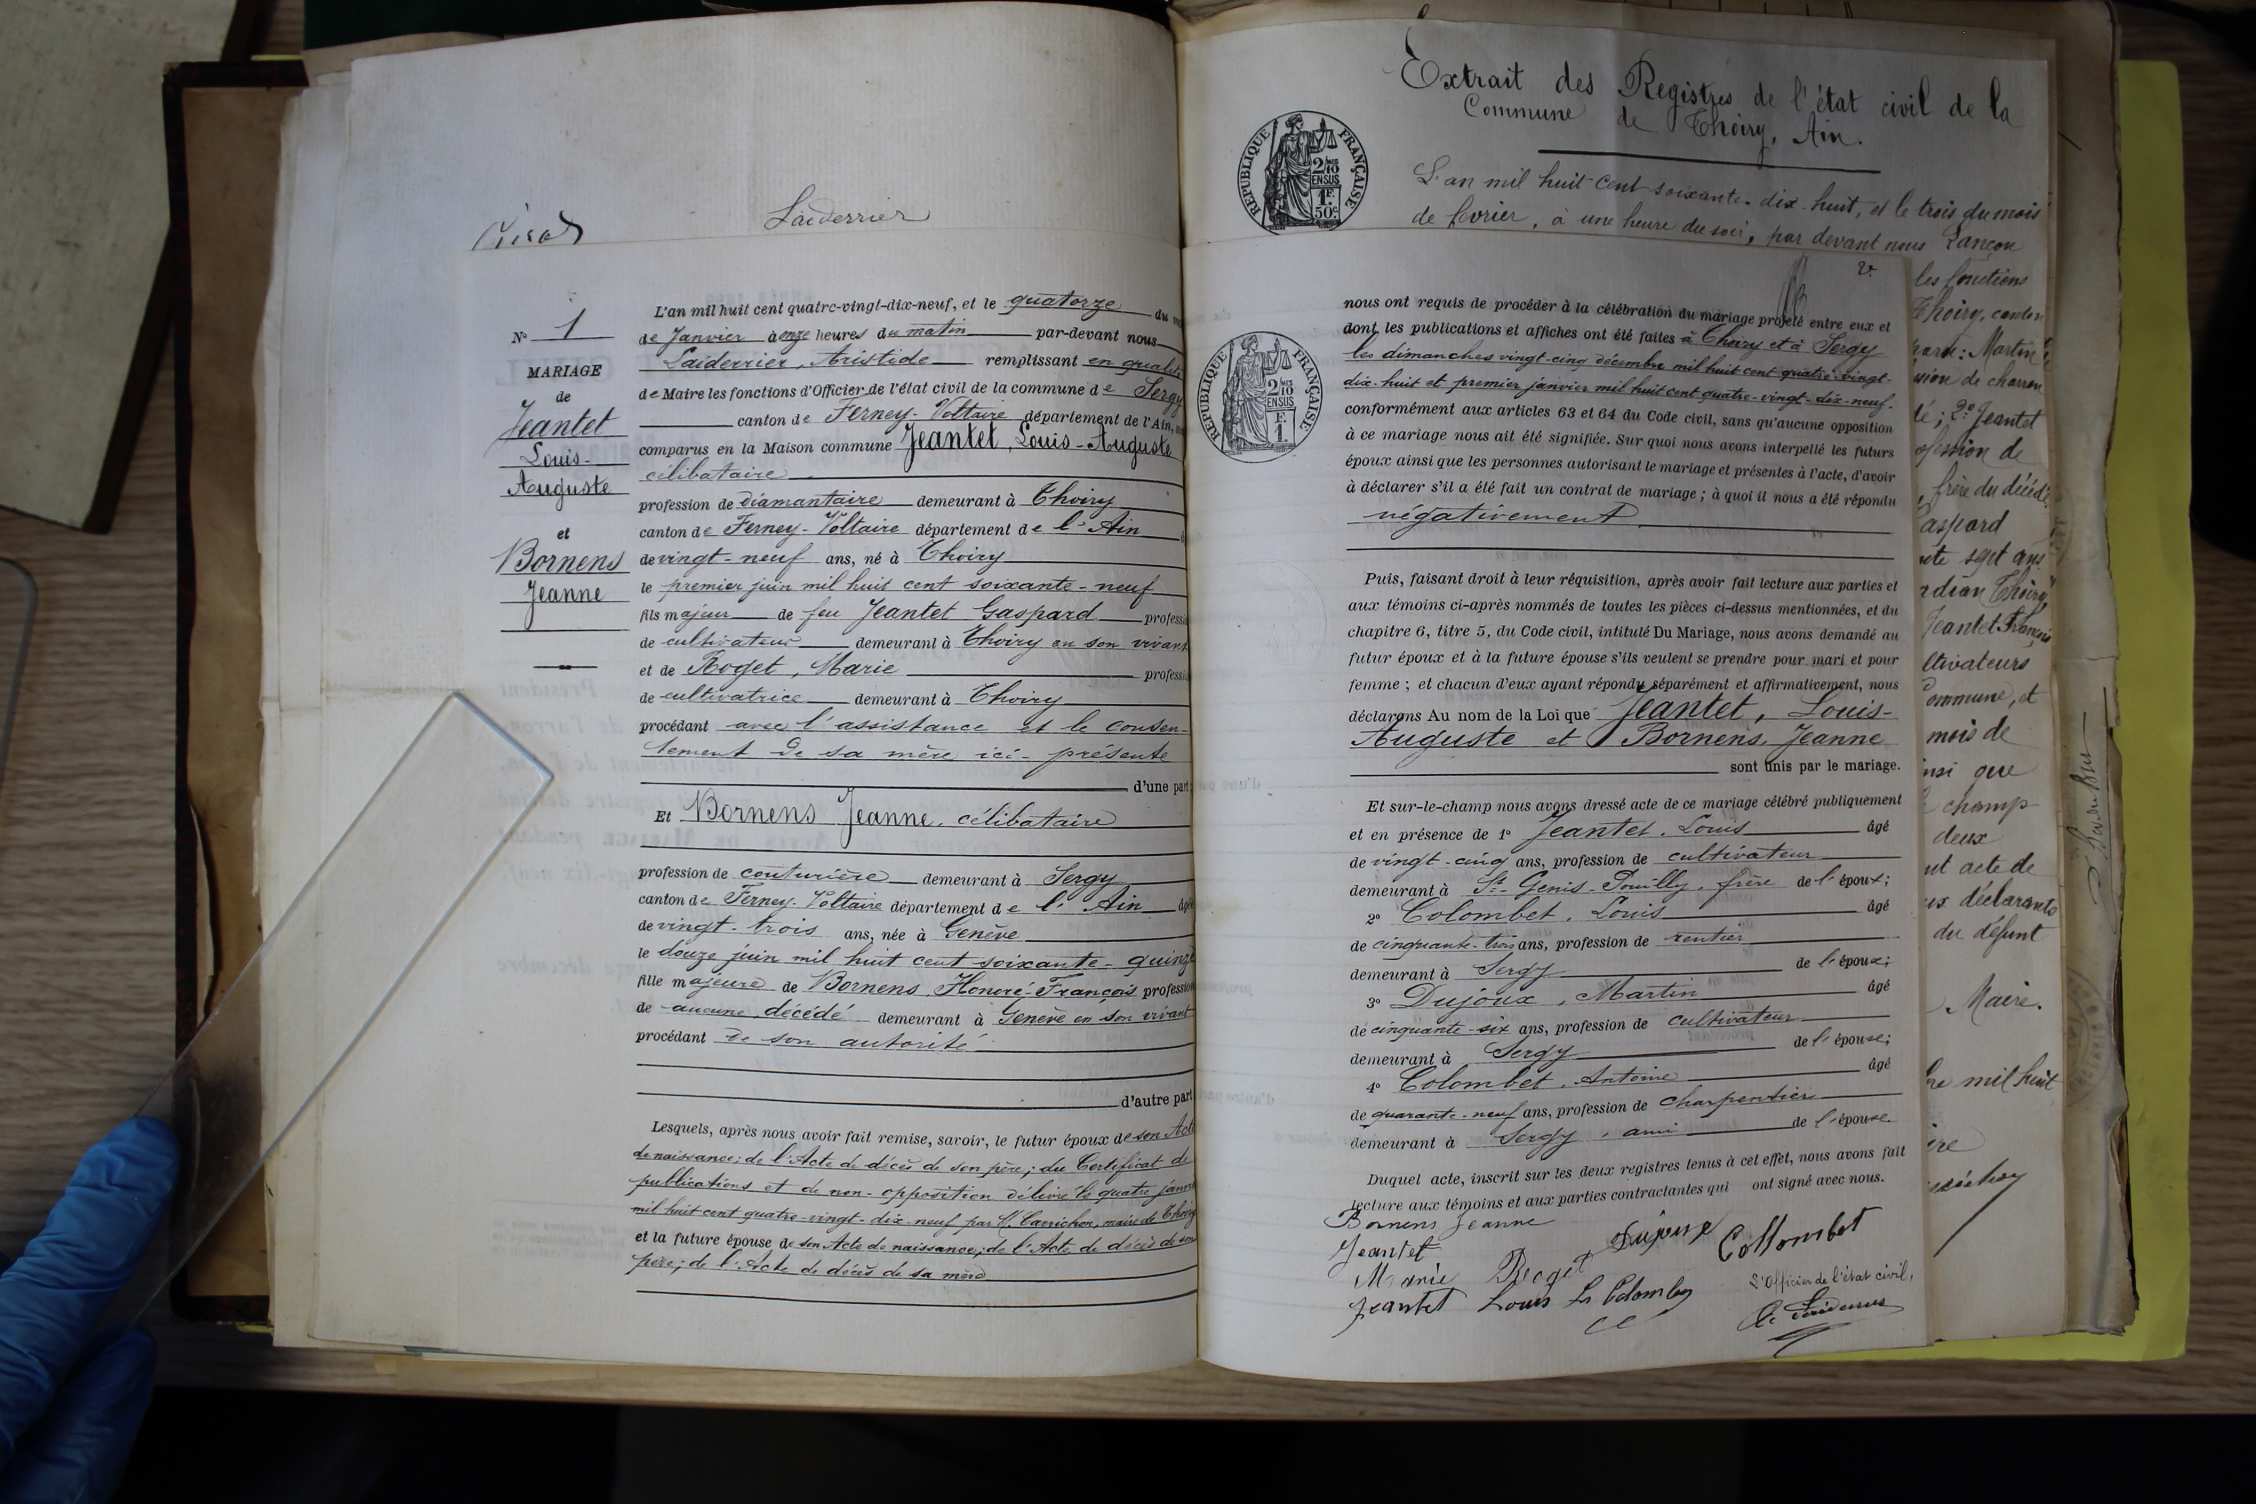 Laiderrier
N° 1
MARIAGE
de
Jeantet
Louis-
Auguste
et
Bornens
Jeanne
L'an mil huit cent quatre-vingt-dix-neuf, et le quatorze du
de Janvier à onze heures du matin par-devant nous
Laiderrier, Aristide remplissant en qualité
de Maire les fonctions d'Officier de l'état civil de la commune de Sergy
canton de Ferney-Voltaire département de l'Ain,
comparus en la Maison commune Jeantet, Louis-Auguste
célibataire
profession de diamantaire demeurant à Thoiry
canton de Ferney-Voltaire département de l'Ain
de vingt-neuf ans, né à Thoiry
le premier juin mil huit cent soixante-neuf
fils majeur de feu Jeantet Gaspard professi
de cultivateur demeurant à Thoiry en son vivant
et de Roget, Marie professi
de cultivatrice demeurant à Thoiry
procédant avec l'assistance et le consen-
tement de sa mère ici-présente
d'une part
Et Bornens Jeanne, célibataire
profession de couturière demeurant à Sergy
canton de Ferney-Voltaire département de l'Ain âgée
de vingt-trois ans, née à Genève
le douze juin mil huit cent soixante-quinze
fille majeure de Bornens, Honoré-François profession
de aucune, décédé demeurant à Genève en son vivant
procédant de son autorité
d'autre part
Lesquels, après nous avoir fait remise, savoir, le futur époux de son Acte
de naissance; de l'Acte de décès de son père; du Certificat de
publications et de non-opposition délivré le quatre janvi
mil huit cent quatre-vingt-dix-neuf par M. Carrichon, maire de Thoiry
et la future épouse de son Acte de naissance; de l'Acte de décès de son
père; de l'Acte de décès de sa mère
Extrait des Registres de l'état civil de la
Commune de Thoiry, Ain.
RÉPUBLIQUE FRANÇAISE
2/10 EN SUS
1F. 50c
L'an mil huit cent soixante-dix-huit, et le trois du mois
de fevrier, à une heure du soir, par devant nous Lançon
2e
RÉPUBLIQUE FRANÇAISE
2/10 EN SUS
F. 1.
nous ont requis de procéder à la célébration du mariage projeté entre eux et
dont les publications et affiches ont été faites à Thoiry et à Sergy
les dimanches vingt-cinq décembre mil huit cent quatre-vingt-
dix-huit et premier janvier mil huit cent quatre-vingt-dix-neuf.
conformément aux articles 63 et 64 du Code civil, sans qu'aucune opposition
à ce mariage nous ait été signifiée. Sur quoi nous avons interpellé les futurs
époux ainsi que les personnes autorisant le mariage et présentes à l'acte, d'avoir
à déclarer s'il a été fait un contrat de mariage ; à quoi il nous a été répondu
négativement
Puis, faisant droit à leur réquisition, après avoir fait lecture aux parties et
aux témoins ci-après nommés de toutes les pièces ci-dessus mentionnées, et du
chapitre 6, titre 5, du Code civil, intitulé Du Mariage, nous avons demandé au
futur époux et à la future épouse s'ils veulent se prendre pour mari et pour
femme ; et chacun d'eux ayant répondu séparément et affirmativement, nous
déclarons Au nom de la Loi que Jeantet, Louis-
Auguste et Bornens, Jeanne
sont unis par le mariage.
Et sur-le-champ nous avons dressé acte de ce mariage célébré publiquement
et en présence de 1° Jeantet, Louis âgé
de vingt-cinq ans, profession de cultivateur
demeurant à St-Genis-Pouilly, frère de l'époux;
2° Colombet, Louis âgé
de cinquante-trois ans, profession de rentier
demeurant à Sergy de l'époux;
3° Dujoux, Martin âgé
de cinquante-six ans, profession de cultivateur
demeurant à Sergy de l'épouse;
4° Colombet, Antoine âgé
de quarante-neuf ans, profession de charpentier
demeurant à Sergy, ami de l'épouse
Duquel acte, inscrit sur les deux registres tenus à cet effet, nous avons fait
lecture aux témoins et aux parties contractantes qui ont signé avec nous.
Bornens Jeanne
Jeantet Dujoux Collombet
Marie Roget
Jeantet Louis Ls Colombet
L'Officier de l'état civil,
A. Laiderrier
les fonctions
Thoiry, canton
Martin
de charron
2° Jeantet
frère du décédé
Gaspard
sept ans
Thoiry,
Jeantet François
commune, et
mois de
que
champ
deux
acte de
déclarants
du défunt
Maire.
mil huit